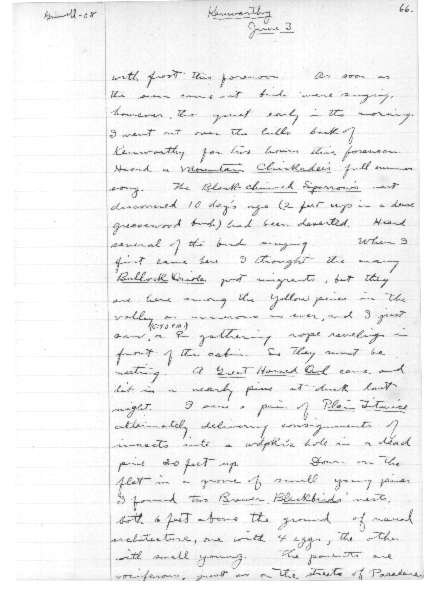 Grinnell - 08
Kenworthy
June 3
66.
with frost this forenoon. As soon as
the sun came out birds were singing,
however, tho quiet early in the morning.
I went out over the hills back of
Kenworthy for two hours this forenoon.
Heard a Mountain Chickadee's full summer
song. The Black-chinned Sparrow's nest
discovered 10 days ago (2 feet up in a dense
greasewood bush) had been deserted. Heard
several of the birds singing. When I
first came here I thought the many
Bullock Orioles just migrants, but they
are here among the yellow pines in the
valley as numerous as ever, and I just
saw (6:30 P.M.) a ♀ gathering rope ravelings in
front of the cabin. So they must be
nesting. A Great Horned Owl came and
lit in a nearby pine at dusk last
night. I saw a pair of Plain Titmice
alternately delivering consignments of
insects into a woodpecker's hole in a dead
pine 20 feet up. Down on the
flat in a grove of small young pines
I found two Brewer Blackbirds' nests,
both 6 feet above the ground of usual
architecture, one with 4 eggs, the other
with small young. The parents are
vociferous, just as on the streets of Pasadena.